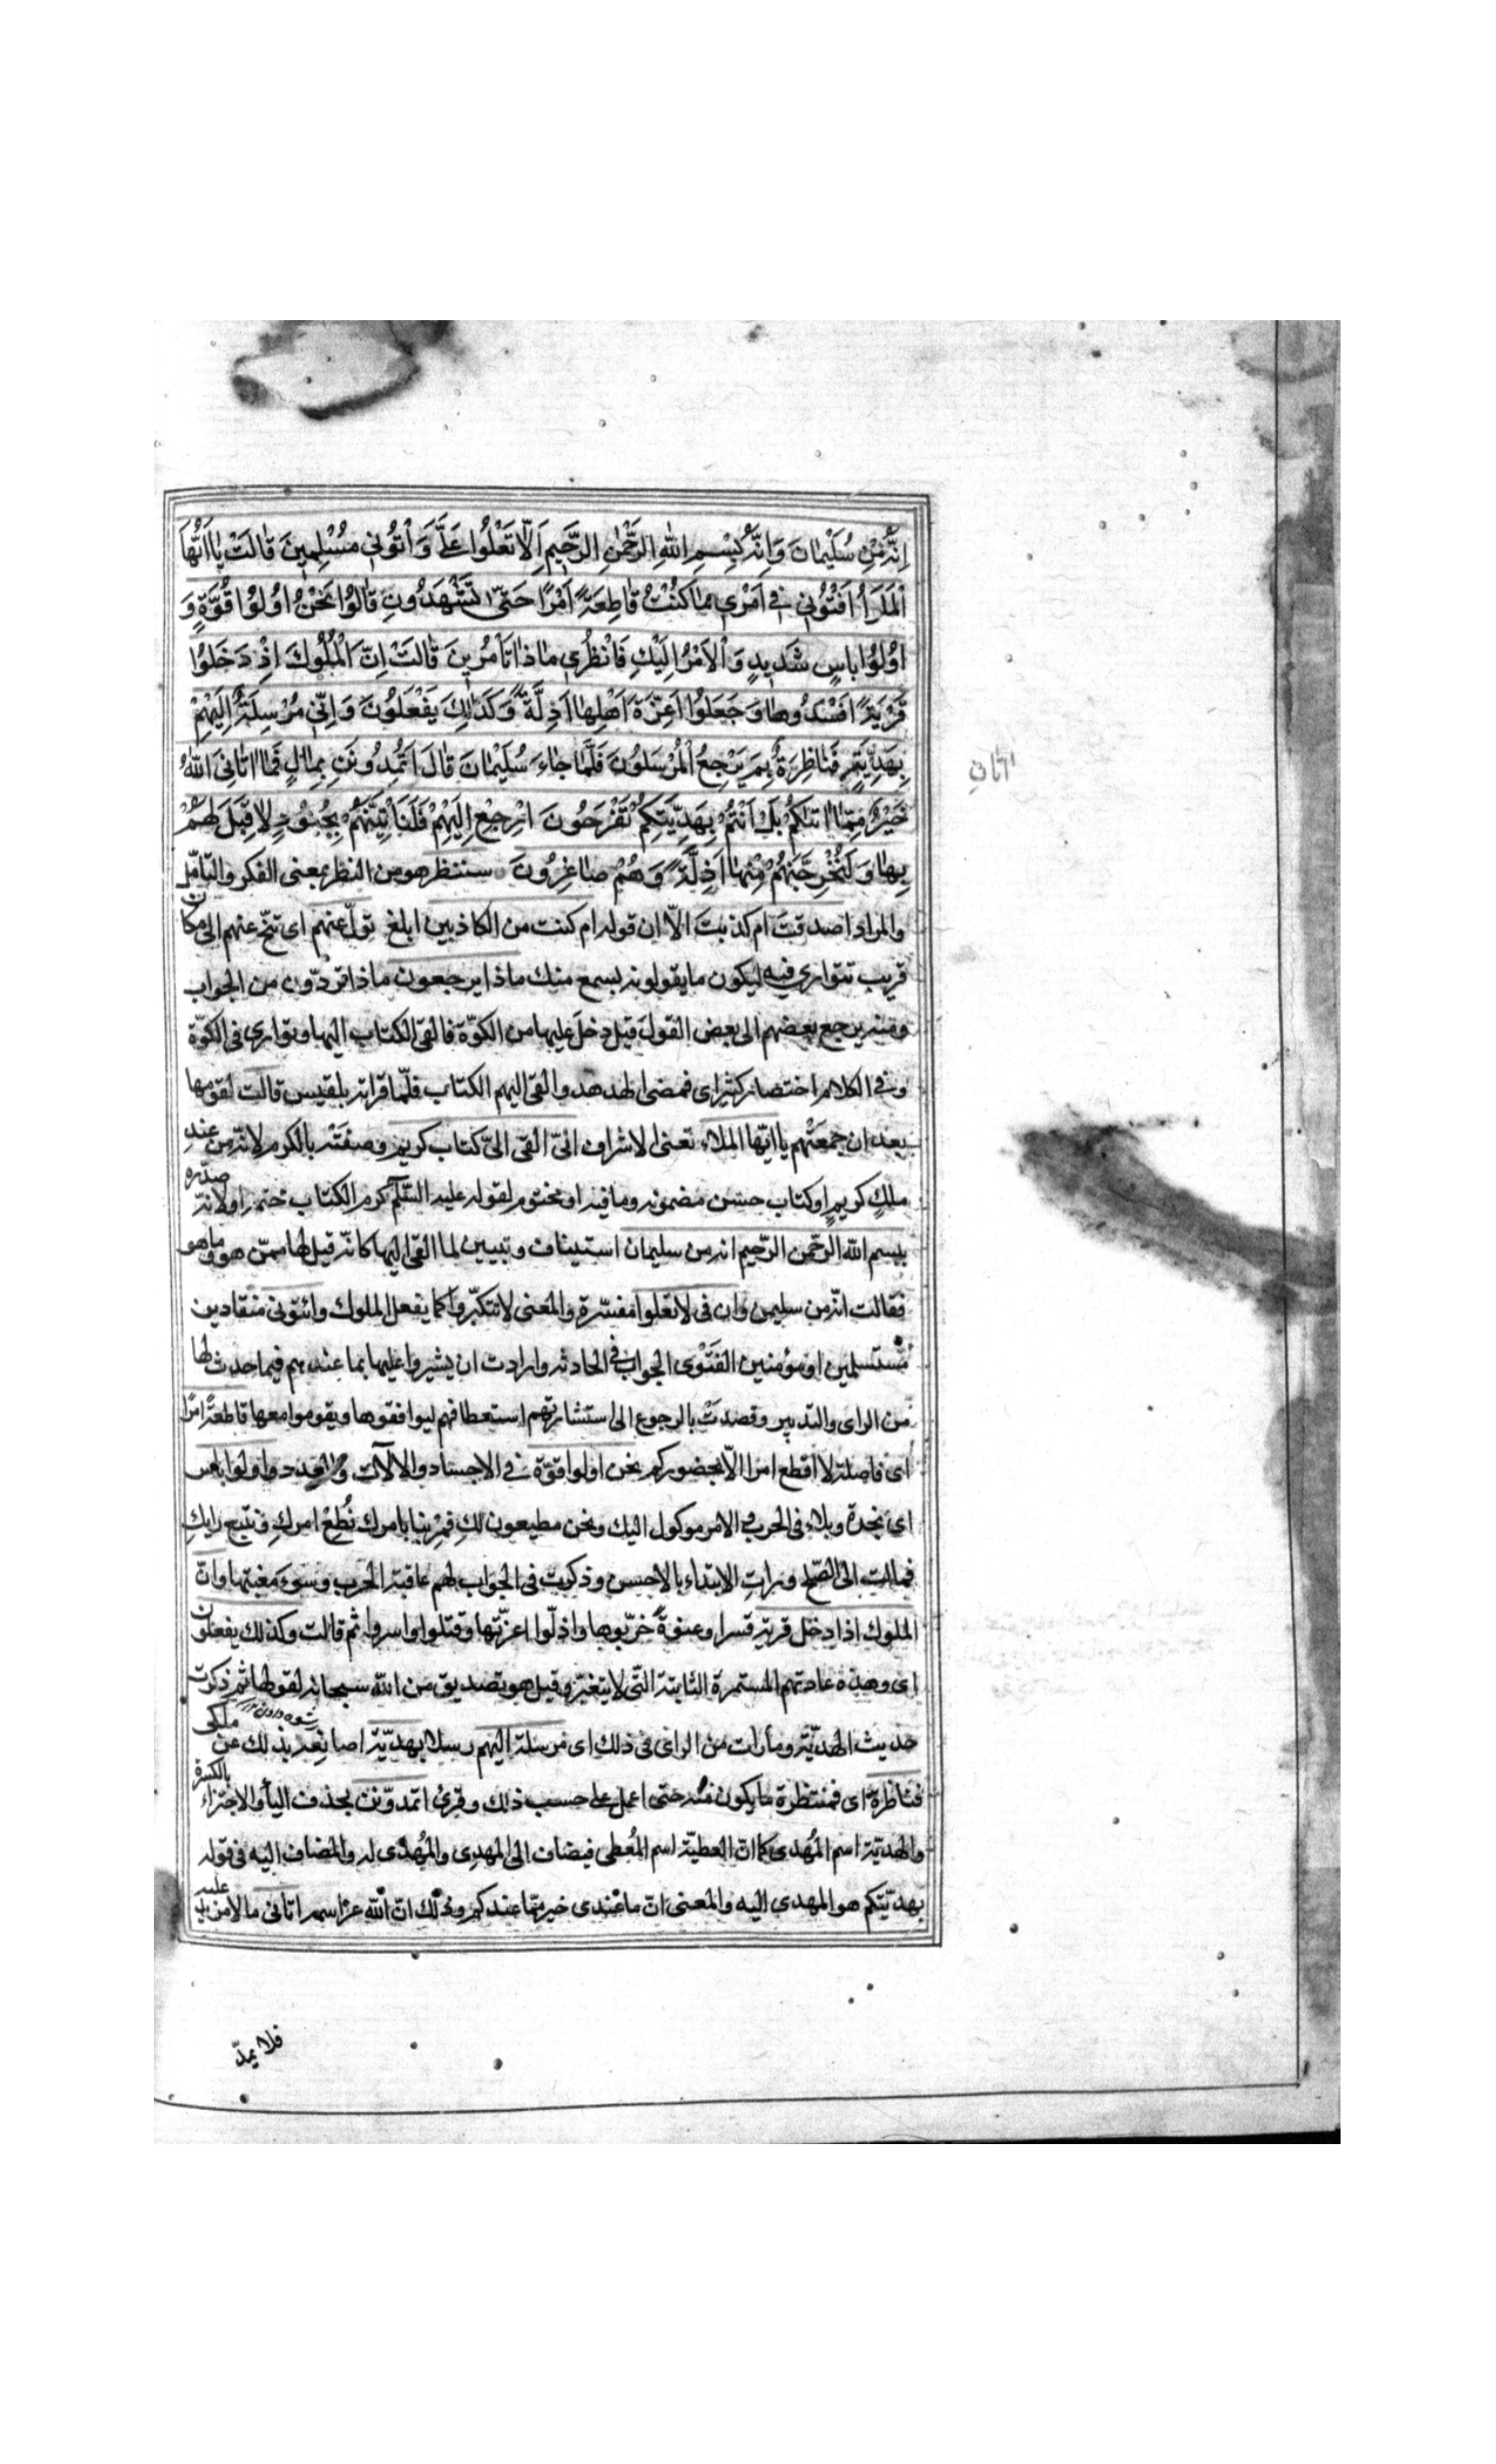 اِنَّهُ مِنْ سُلَيْمانَ وَاِنَّهُ بِسْمِ اللهِ الرَّحْمٰنِ الرَّحيمِ اَلّا تَعْلُوا عَلَيَّ وَ اْتُوني مُسْلِمينَ قالَتْ يا اَيُّهَا
الْمَلَؤُا اَفْتُوني في اَمْري ما كُنْتُ قاطِعَةً اَمْرًا حَتّى تَشْهَدُونِ قالُوا نَحْنُ اوُلُوا قُوَّةٍ وَ
اوُلُوا باسٍ شَديدٍ وَالْاَمْرُ اِلَيْكِ فَانْظُري ماذا تَأمُرينَ قالَتْ اِنَّ الْمُلُوكَ اِذْ دَخَلُوا
قَرْيَةً اَفْسَدُوها وَجَعَلُوا اَعِزَّةَ اَهْلِها اَذِلَّةً وَكَذلِكَ يَفْعَلُونَ وَاِنّي مُرْسِلَةٌ اِلَيْهِمْ
بِهَدِيَّةٍ فَناظِرَةٌ بِمَ يَرْجِعُ الْمُرْسَلُونَ فَلَمّا جاءَ سُلَيْمانَ قالَ اَتُمِدُّونَنِ بِمالٍ فَما اتانِيَ اللهُ
خَيْرٌ مِمّا اتيكُمْ بَلْ اَنْتُمْ بِهَدِيَّتِكُمْ تَفْرَحُونَ اِرْجِعْ اِلَيْهِمْ فَلَنَأتِيَنَّهُمْ بِجُنُودٍ لا قِبَلَ لَهُمْ
بِها وَلَنُخْرِجَنَّهُمْ مِنْها اَذِلَّةً وَهُمْ صاغِرُونَ سننظر هو من النظر بمعنى الفكر والتأمّل
والمراد اصدقت ام كذبت الّا ان قوله ام كنت من الكاذبين ابلغ تولّ عنهم اى تنحّ عنهم الى مكان
قريب تتوارى فيه ليكون ما يقولونه بسمع منك ماذا يرجعون ماذا تردّون من الجواب
ومنه يرجع بعضهم الى بعض القول قيل دخل عليها من الكوّة فالقى الكتاب اليها وتوارى فى الكوّة
وفى الكلام اختصار كثير اى فمضى الهدهد والقى اليهم الكتاب فلمّا قراته بلقيس قالت لقومها
بعد ان جمعتهم يا ايّها الملاء تعنى الاشراف انّى القى الىّ كتاب كريم وصفته بالكرم لانّه من عند
ملكٍ كريمٍ او كتاب حسن مضمونه وما فيه او مختوم لقوله عليه السّلم كرم الكتاب ختمه او لانّه صدّره
ببسم الله الرّحمن الرّحيم انه من سليمان استيناف وتبيين لما القى اليها كانّه قيل لها ممّن هو وما هو
فقالت انّه من سليمن وان فى لا تعلوا مفسّرة والمعنى لا تتكبّروا كما يفعل الملوك وائتونى منقادين
مستسلمين او مؤمنين الفتوى الجواب فى الحادثه وارادت ان يشيروا عليها بما عندهم فيما حدث لها
من الراى والتدبير وقصدت بالرجوع الى استشارتهم استعطافهم ليوافقوها ويقوموا معها قاطعةً امرًا
اى فاصلة لا اقطع امرا الّا بحضوركم نحن اولوا قوّة فى الاجساد والآلات والعدد واولوا باس
اى نجدة وبلاء فى الحرب والامر موكول اليك ونحن مطيعون لكِ فمُرينا بامرك نُطِعْ امركِ ونتّبع رايكِ
فمالت الى الصّلح ورات الابتداء بالاحسن وذكرت فى الجواب لهم عاقبة الحرب وسوء مغبتها وانّ
الملوك اذا دخل قرية قسرا وعنوةً خرّبوها واذلّوا اعزّتها وقتلوا واسروا ثم قالت وكذلك يفعلون
اى وهذه عادتهم المستمرة الثابتة الّتى لا يتغيّر وقيل هو تصديق من الله سبحانه لقولها ثم ذكرت
حديث الهديّة وما رات من الراى فى ذلك اى مرسلة اليهم رسلا بهديّة اصانعه بذلك عن ملكى
فناظرة اى فمنتظرة ما يكون منه حتى اعمل على حسب ذلك وقرئ اتمدّونن بحذف الياء والاجتزاء بالكسرة
والهديّة اسم المُهدى كما انّ العطيّة اسم المُعطى فيضاف الى المهدِى والمُهدى له والمضاف اليه فى قوله
بهديّتكم هو المهدى اليه والمعنى انّ ما عندى خير ممّا عندكم وذلك انّ الله عزّ اسمه اتانى ما لا مزيد عليه
اتانى
فلا يمدّ